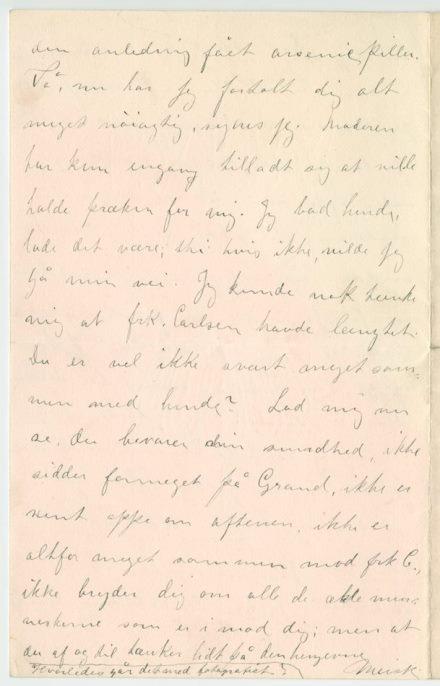 den anledning fået arsenicpiller.
Så, nu har jeg fortalt dig alt
meget nøiagtig, synes jeg. Moderen
har kun engang tilladt sig at ville
holde præken for mig. Jeg bad hende,
lade det være; thi hvis ikke, vilde jeg
gå min vei. Jeg kunde nok tænke
mig at frk. Carlsen havde længtet.
Du er vel ikke svært meget sam=
men med hende? Lad mig nu
se, du bevarer din sundhed, ikke
sidder formeget på Grand, ikke er
sent oppe om aftenen, ikke er
altfor meget sammen med frk C.,
ikke bryder dig om alle de ækle men-
neskerne som er i mod dig; men at
du af og til tænker lidt på den hengivne
Hvorledes går det med fotografiet?